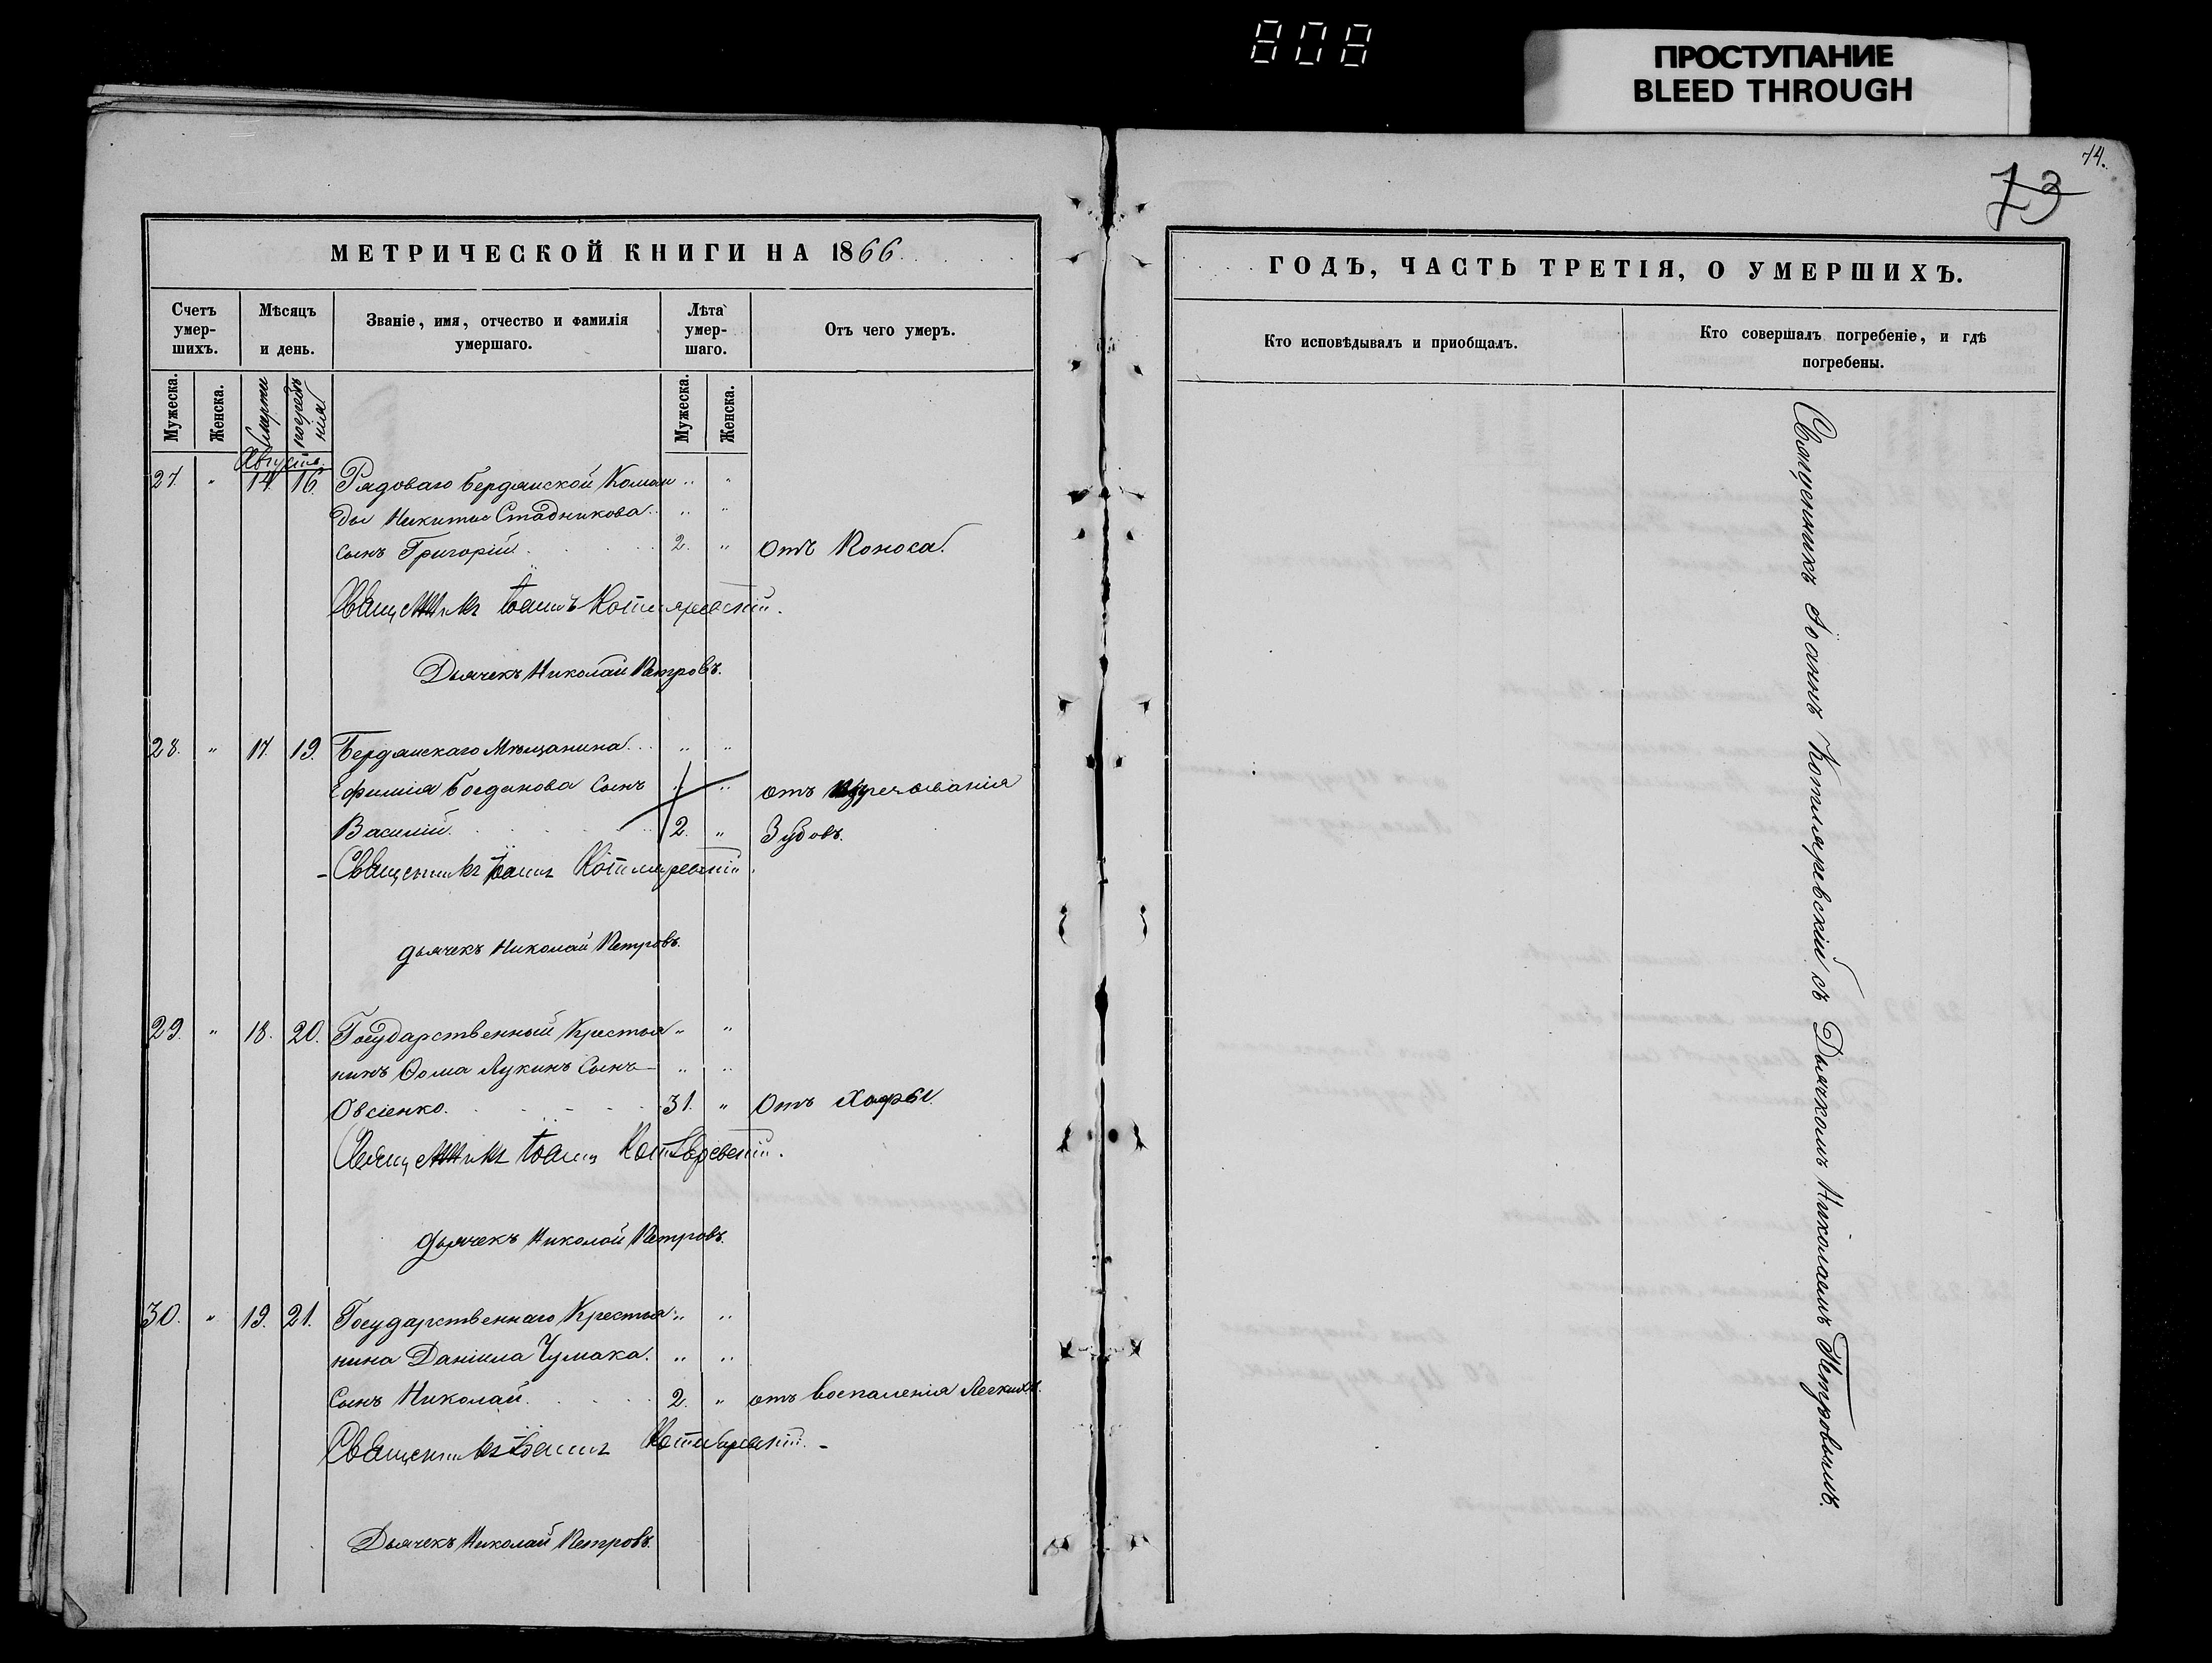 808
ПРОСТУПАНИЕ
BLEED THROUGH
74.
73
МЕТРИЧЕСКОЙ КНИГИ НА 1866
Счетъ умер-шихъ.
Мѣсяцъ и день.
Званіе, имя, отчество и фамилія умершаго.
Лѣта умер-шаго.
Отъ чего умеръ.
Мужеска.
Женска.
Смерти
погребенія
Мужеска.
Женска.
Августъ.
27. " 14. 16. Рядоваго Бердянской Коман " "
ды Никиты Стадникова " "
сынъ Григорій 2. " Отъ Поноса.
Священникъ Іоаннъ Котляревскій.
Дьячекъ Николай Петровъ.
28. " 17. 19. Бердянскаго Мѣщанина " "
Ефимія Богданова Сынъ " " отъ прорезованія
Василій 2. " Зубовъ.
Священникъ Іоаннъ Котляревскій
дьячекъ Николай Петровъ.
29. " 18. 20. Государственный Крестья " "
нинъ Ѳома Лукинъ Сынъ " "
Овсіенко. 31. " Отъ
Священникъ Іоаннъ Котляревскій.
дьячекъ Николай Петровъ.
30. " 19. 21. Государственнаго Крестья " "
нина Даніила Чумака. " "
Сынъ Николай 2. " отъ воспаленія Легкихъ.
Священникъ Іоаннъ Котляревскій.
Дьячекъ Николай Петровъ.
ГОДЪ, ЧАСТЬ ТРЕТІЯ, О УМЕРШИХЪ.
Кто исповѣдывалъ и пріобщалъ.
Кто совершалъ погребеніе, и гдѣ погребены.
Священникъ Іоаннъ Котляревскій съ Дьячкомъ Николаемъ Петровымъ.